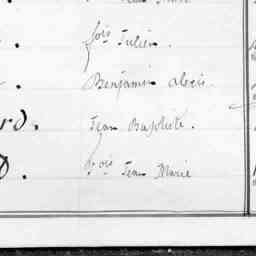 fois Julien.
Benjamin alexis.
rd. Jean Baptiste.
fois Jean Marie